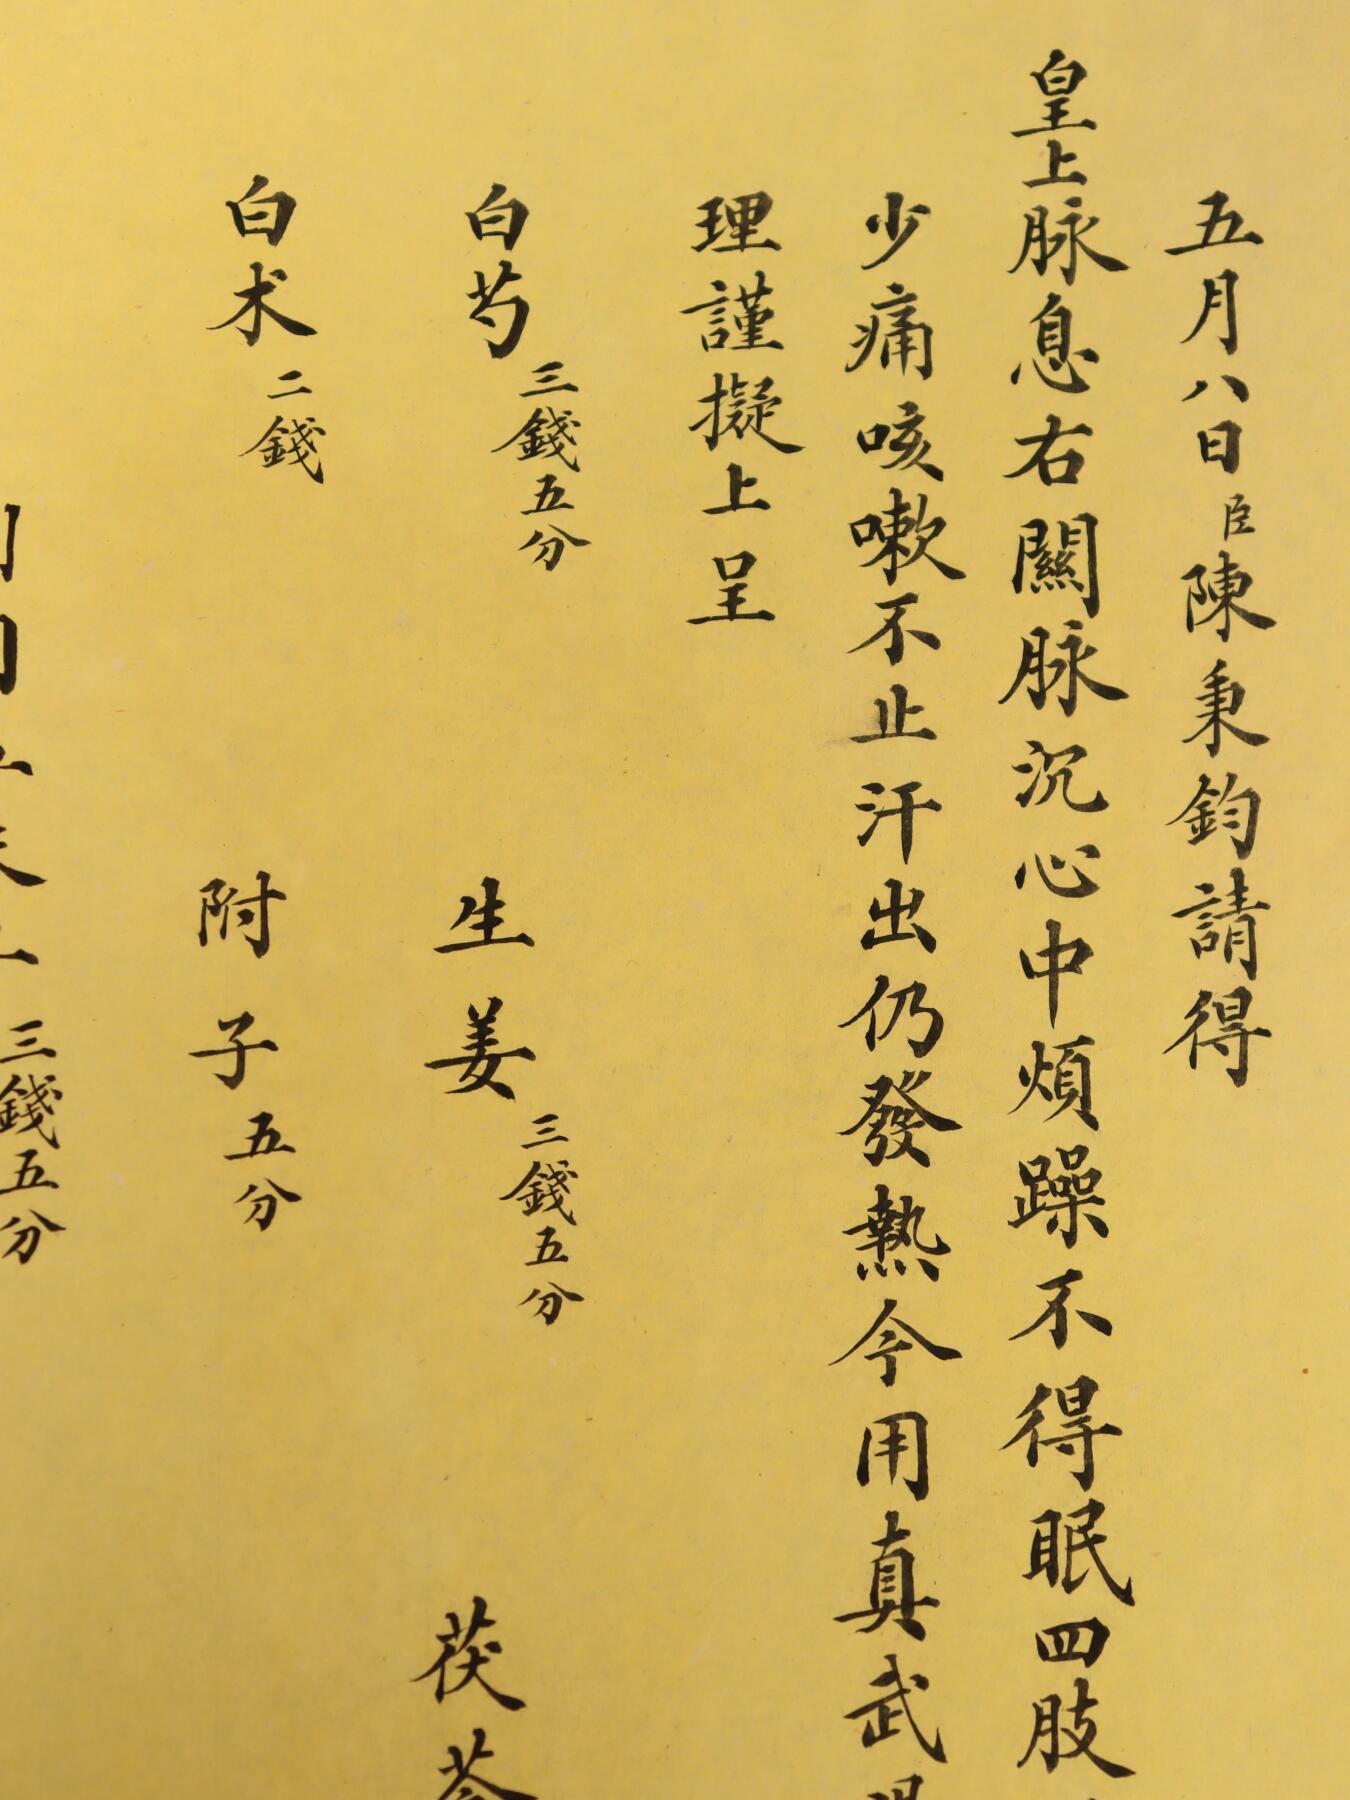 五月八日臣陳秉鈞請得
皇上脉息右關脉沉心中煩躁不得眠四肢
少痛咳嗽不止汗出仍發熱今用真武
理謹擬上呈
白芍三錢五分 生姜三錢五分 茯苓
白术二錢 附子五分
三錢五分